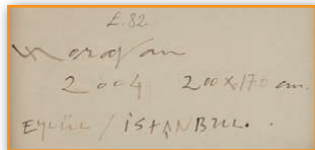 E.82.
2004 200x170 cm.
EYLÜL / İSTANBUL.